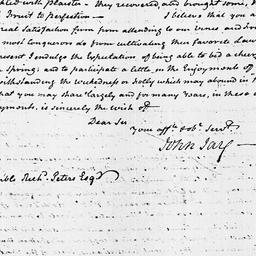 with Plaister – they recovered and brought some,
Fruit to Perfection – I believe that you
real Satisfaction from from attending to our vines and
most Conquerors do from cultivating their favorite Law
present I indulge the Expectation of being able to bid a cheer
Spring; and to participate a little in the Enjoyments of
withstanding the wickedness & Folly which may abound in
that you may share largely and for many Years, in these
joyments, is sincerely the wish of
Dear Sir
your affte. & obt. Servt.
John Jay
Richd. Peters Esqr.